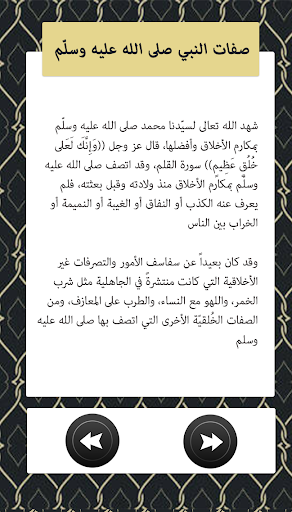 صفات النبي صلى الله عليه وسلّم
شهد الله تعالى لسيّدنا محمد صلى الله عليه وسلّم
بمكارم الأخلاق وأفضلها، قال عز وجل ((وَإِنَّكَ لَعَلى
خُلُقٍ عَظِيمٍ)) سورة القلم، وقد اتصف صلى الله عليه
وسلَّم بمكارم الأخلاق منذ ولادته وقبل بعثته، فلم
يعرف عنه الكذب أو النفاق أو الغيبة أو النميمة أو
الخراب بين الناس
وقد كان بعيداً عن سفاسف الأمور والتصرفات غير
الأخلاقية التي كانت منتشرةً في الجاهلية مثل شرب
الخمر، واللهو مع النساء، والطرب على المعازف، ومن
الصفات الخُلقيّة الأخرى التي اتصف بها صلى الله عليه
وسلم